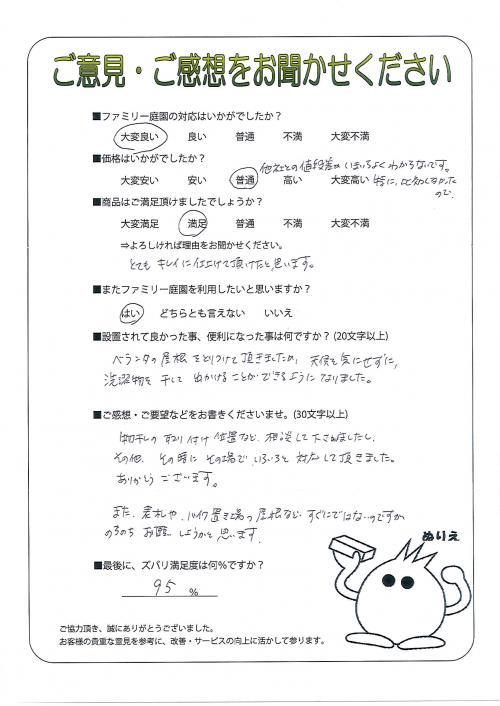 ご意見・ご感想をお聞かせください
■ファミリー庭園の対応はいかがでしたか？
大変良い 良い 普通 不満 大変不満
■価格はいかがでしたか？
他社との値段差がいまいちよくわからないです。
大変安い 安い 普通 高い 大変高い 特に、比較しなかった
ので、
■商品はご満足頂けましたでしょうか？
大変満足 満足 普通 不満 大変不満
⇒よろしければ理由をお聞かせください。
とても キレイに仕上げて頂けたと思います。
■またファミリー庭園を利用したいと思いますか？
はい どちらとも言えない いいえ
■設置されて良かった事、便利になった事は何ですか？ (20文字以上)
ベランダの屋根をとりつけて頂きましたため、天候を気にせずに、
洗濯物を干して出かけることができるようになりました。
■ご感想・ご要望などをお書きくださいませ。(30文字以上)
物干しの取り付け位置など、相談して下さいましたし、
その他、その時にその場でいろいろと対応して頂きました。
ありがとうございます。
また、表札や、バイク置き場の屋根など、すぐにではないのですが
のちのちお願いしようかと思います。
ぬりえ
■最後に、ズバリ満足度は何%ですか？
95 %
ご協力頂き、誠にありがとうございました。
お客様の貴重な意見を参考に、改善・サービスの向上に活かして参ります。